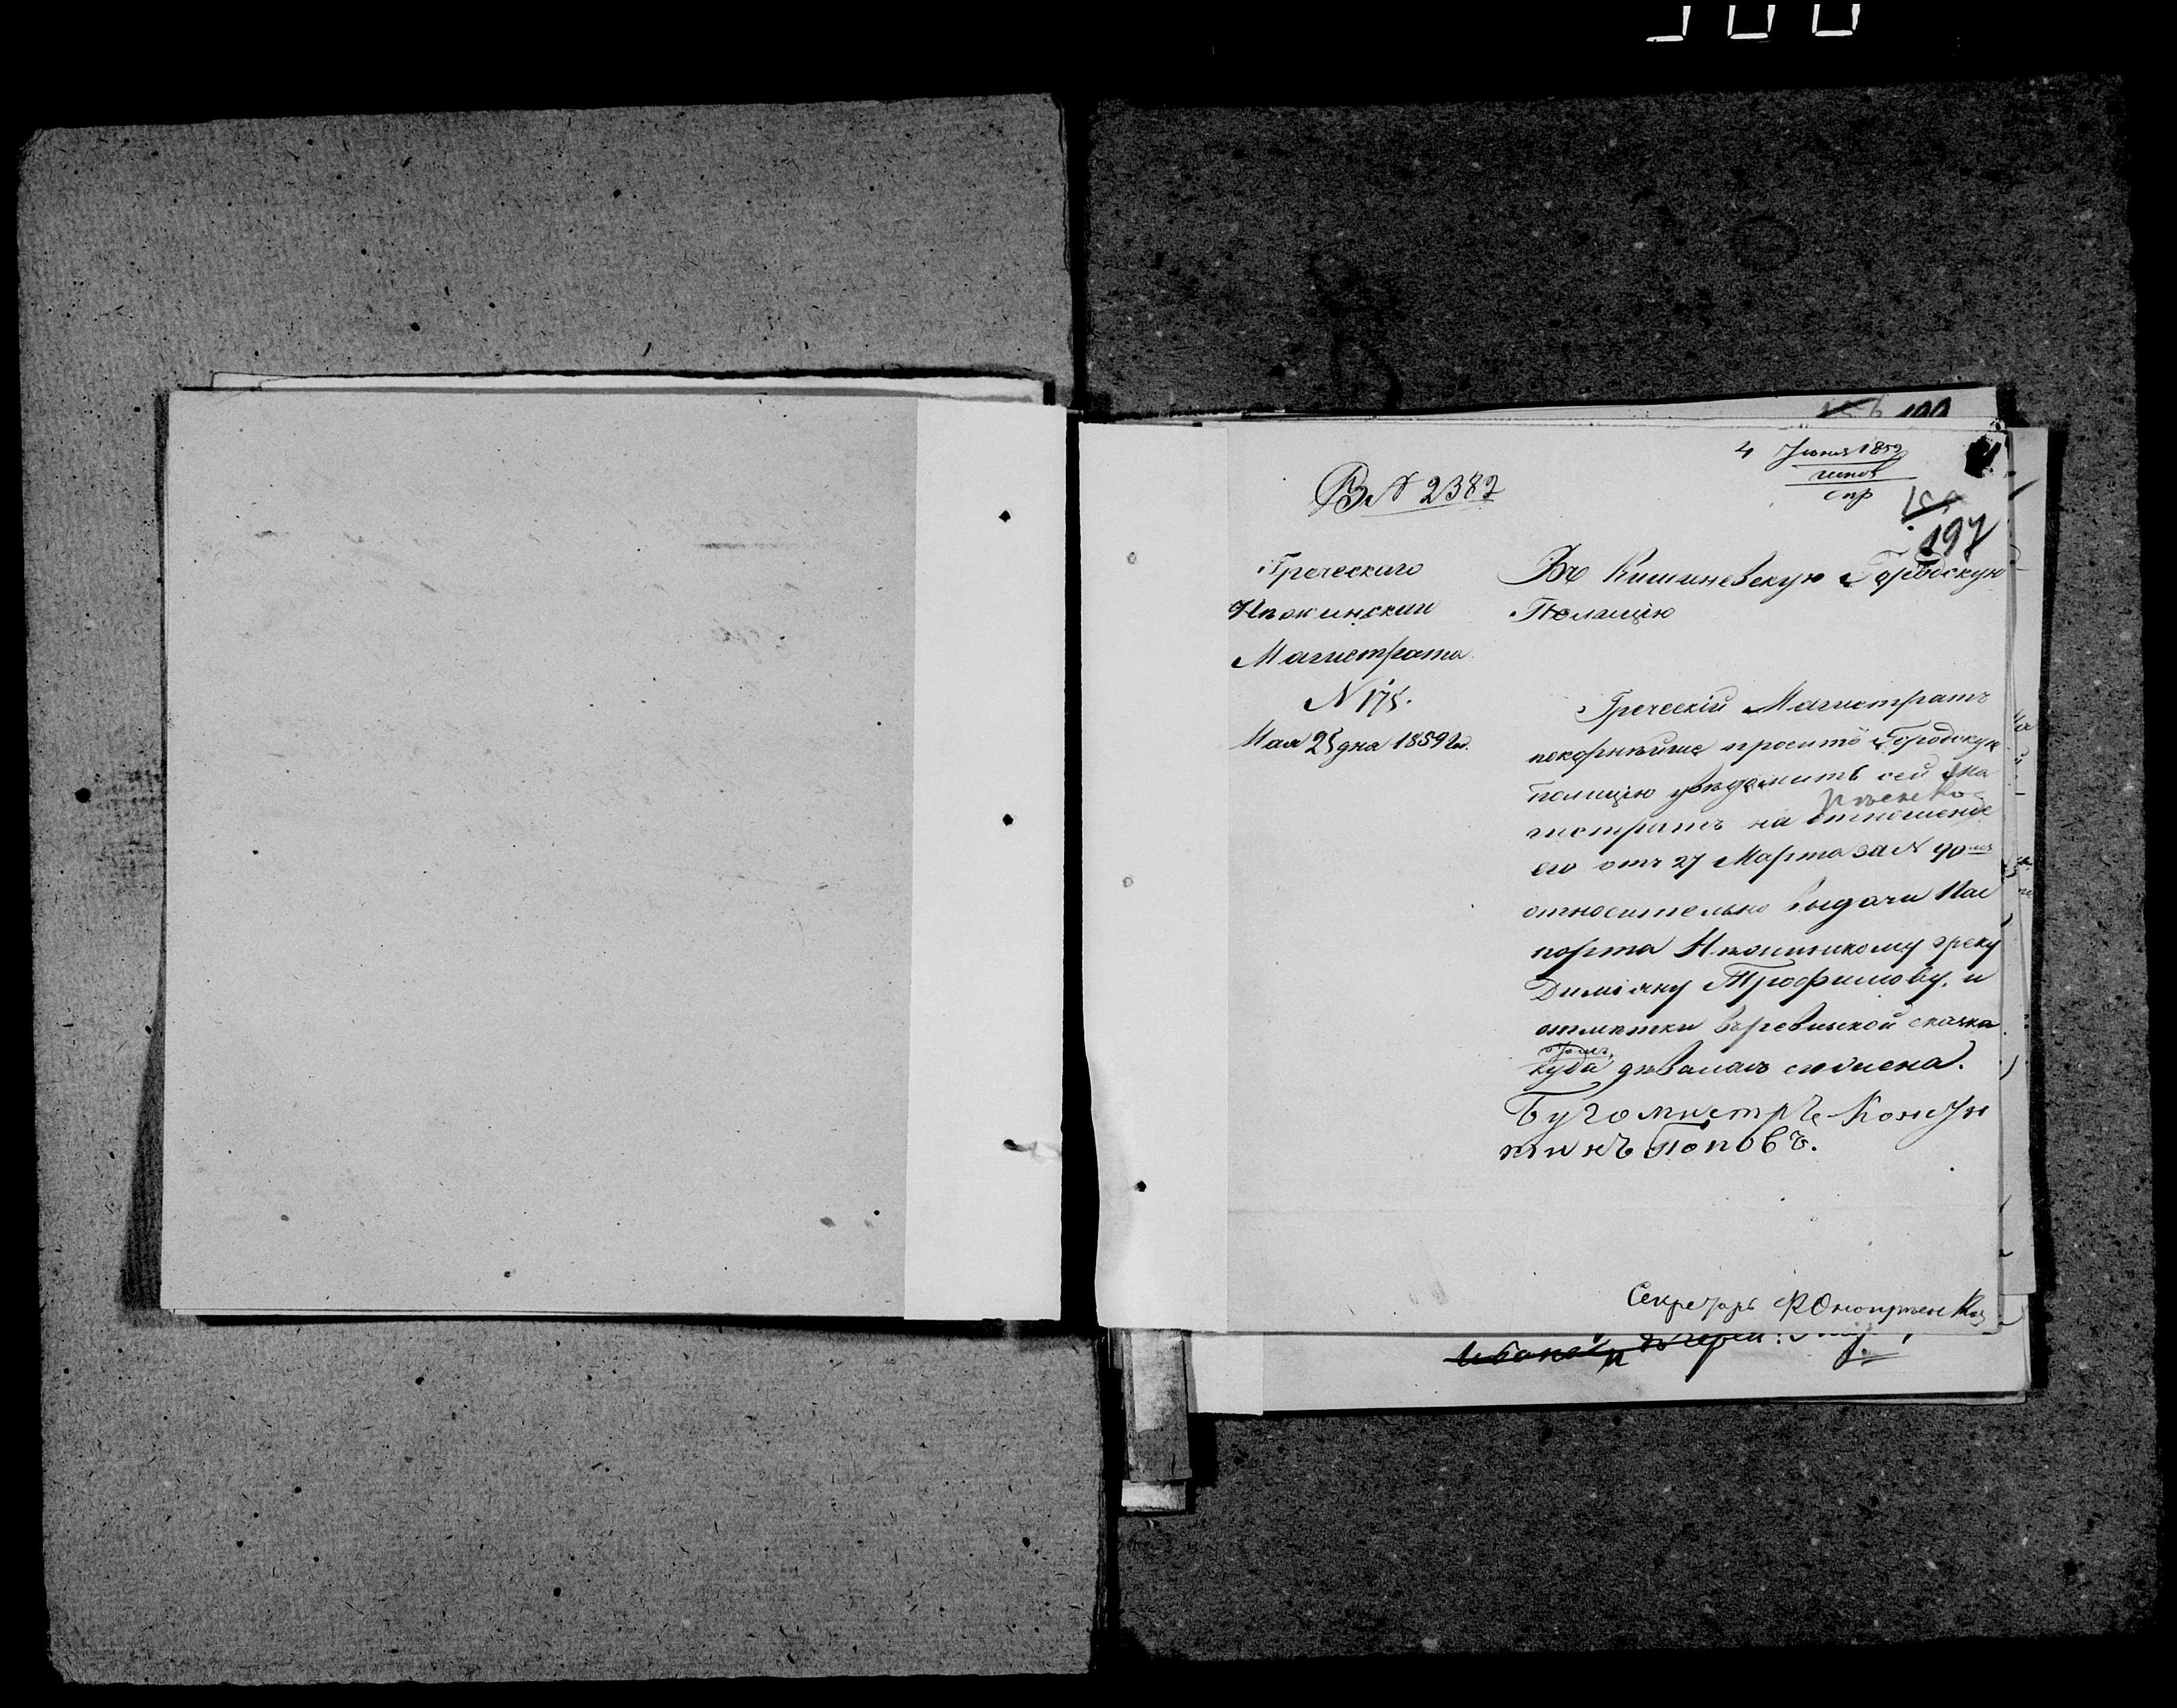 4 Июня 1859
В. N 2382
197
Греческаго
Нѣжинскаи
Магистрата
N 175.
Мая 25 дна 1859 го.
Въ Кишиневскую Городскую
Полицію
Греческій Магистратъ
покорнѣйше проситъ Городскую
полицію увѣдомить сей Ма
гистратъ на отношение
его отъ 27 Марта за N 90
относительно выдачи Пас
порта Нѣжинскому греку
Диміану Трофимову, и
отметки въ ревиской сказка
куда дѣвалась
Бугомистръ Констан
тинъ Поповъ.
Секретарь